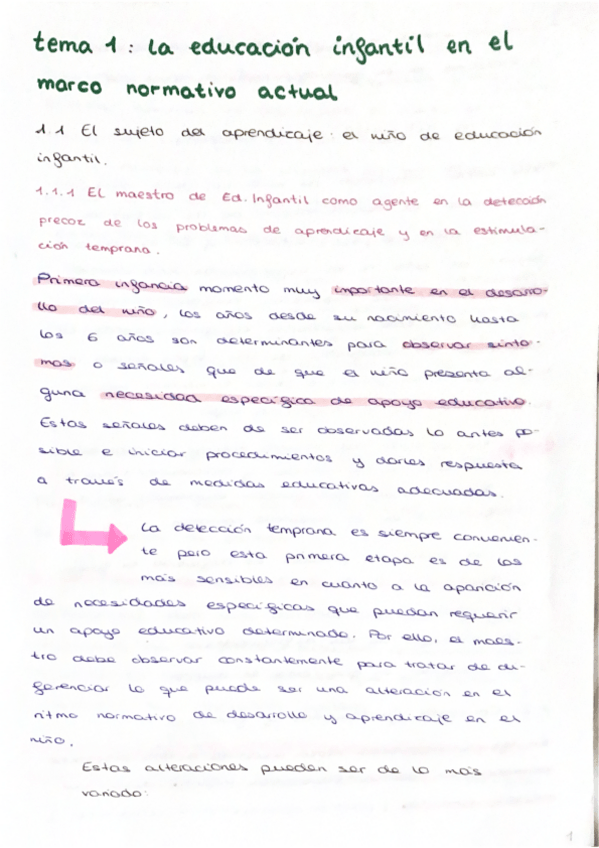 tema 1: La educación infantil en el
marco normativo actual
1.1 El sujeto del aprendizaje: el niño de educación
infantil.
1.1.1 El maestro de Ed. Infantil como agente en la detección
precoz de los problemas de aprendizaje y en la estimula-
ción temprana.
Primera infancia momento muy importante en el desarro-
llo del niño, los años desde su nacimiento hasta
los 6 años son determinantes para observar sínto-
mas o señales que de que el niño presenta al-
guna necesidad específica de apoyo educativo.
Estas señales deben de ser observadas lo antes po-
sible e iniciar procedimientos y darles respuesta
a través de medidas educativas adecuadas.
La detección temprana es siempre convenien-
te pero esta primera etapa es de las
más sensibles en cuanto a la aparición
de necesidades específicas que puedan requerir
un apoyo educativo determinado. Por ello, el maes-
tro debe observar constantemente para tratar de di-
ferenciar lo que puede ser una alteración en el
ritmo normativo de desarollo y aprendizaje en el
niño.
Estas alteraciones pueden ser de lo más
variado:
1